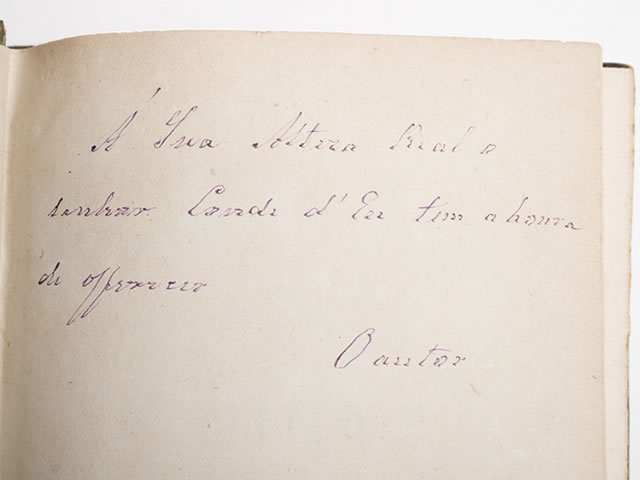 Á Sua Alteza Real o
senhor Conde d'Eu tem a honra
de offerecer
O autor